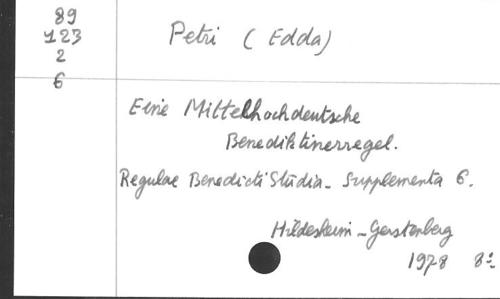 89
123
2
6
Petri (Edda)
Eine Mittelhochdeutsche
Benediktinerregel.
Regulae Benedicti Studia_ Supplementa 6.
Hildesheim_Gerstenberg
1978 8º